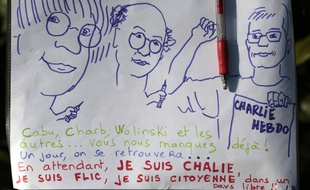 CHARLIE
HEBDO
Cabu, Charb, Wolinski et les
autres... vous nous manquez déjà !
Un jour, on se retrouvera...
En attendant, JE SUIS CHALIE
JE SUIS FLIC, JE SUIS CITOYENNE, dans un
pays libre !